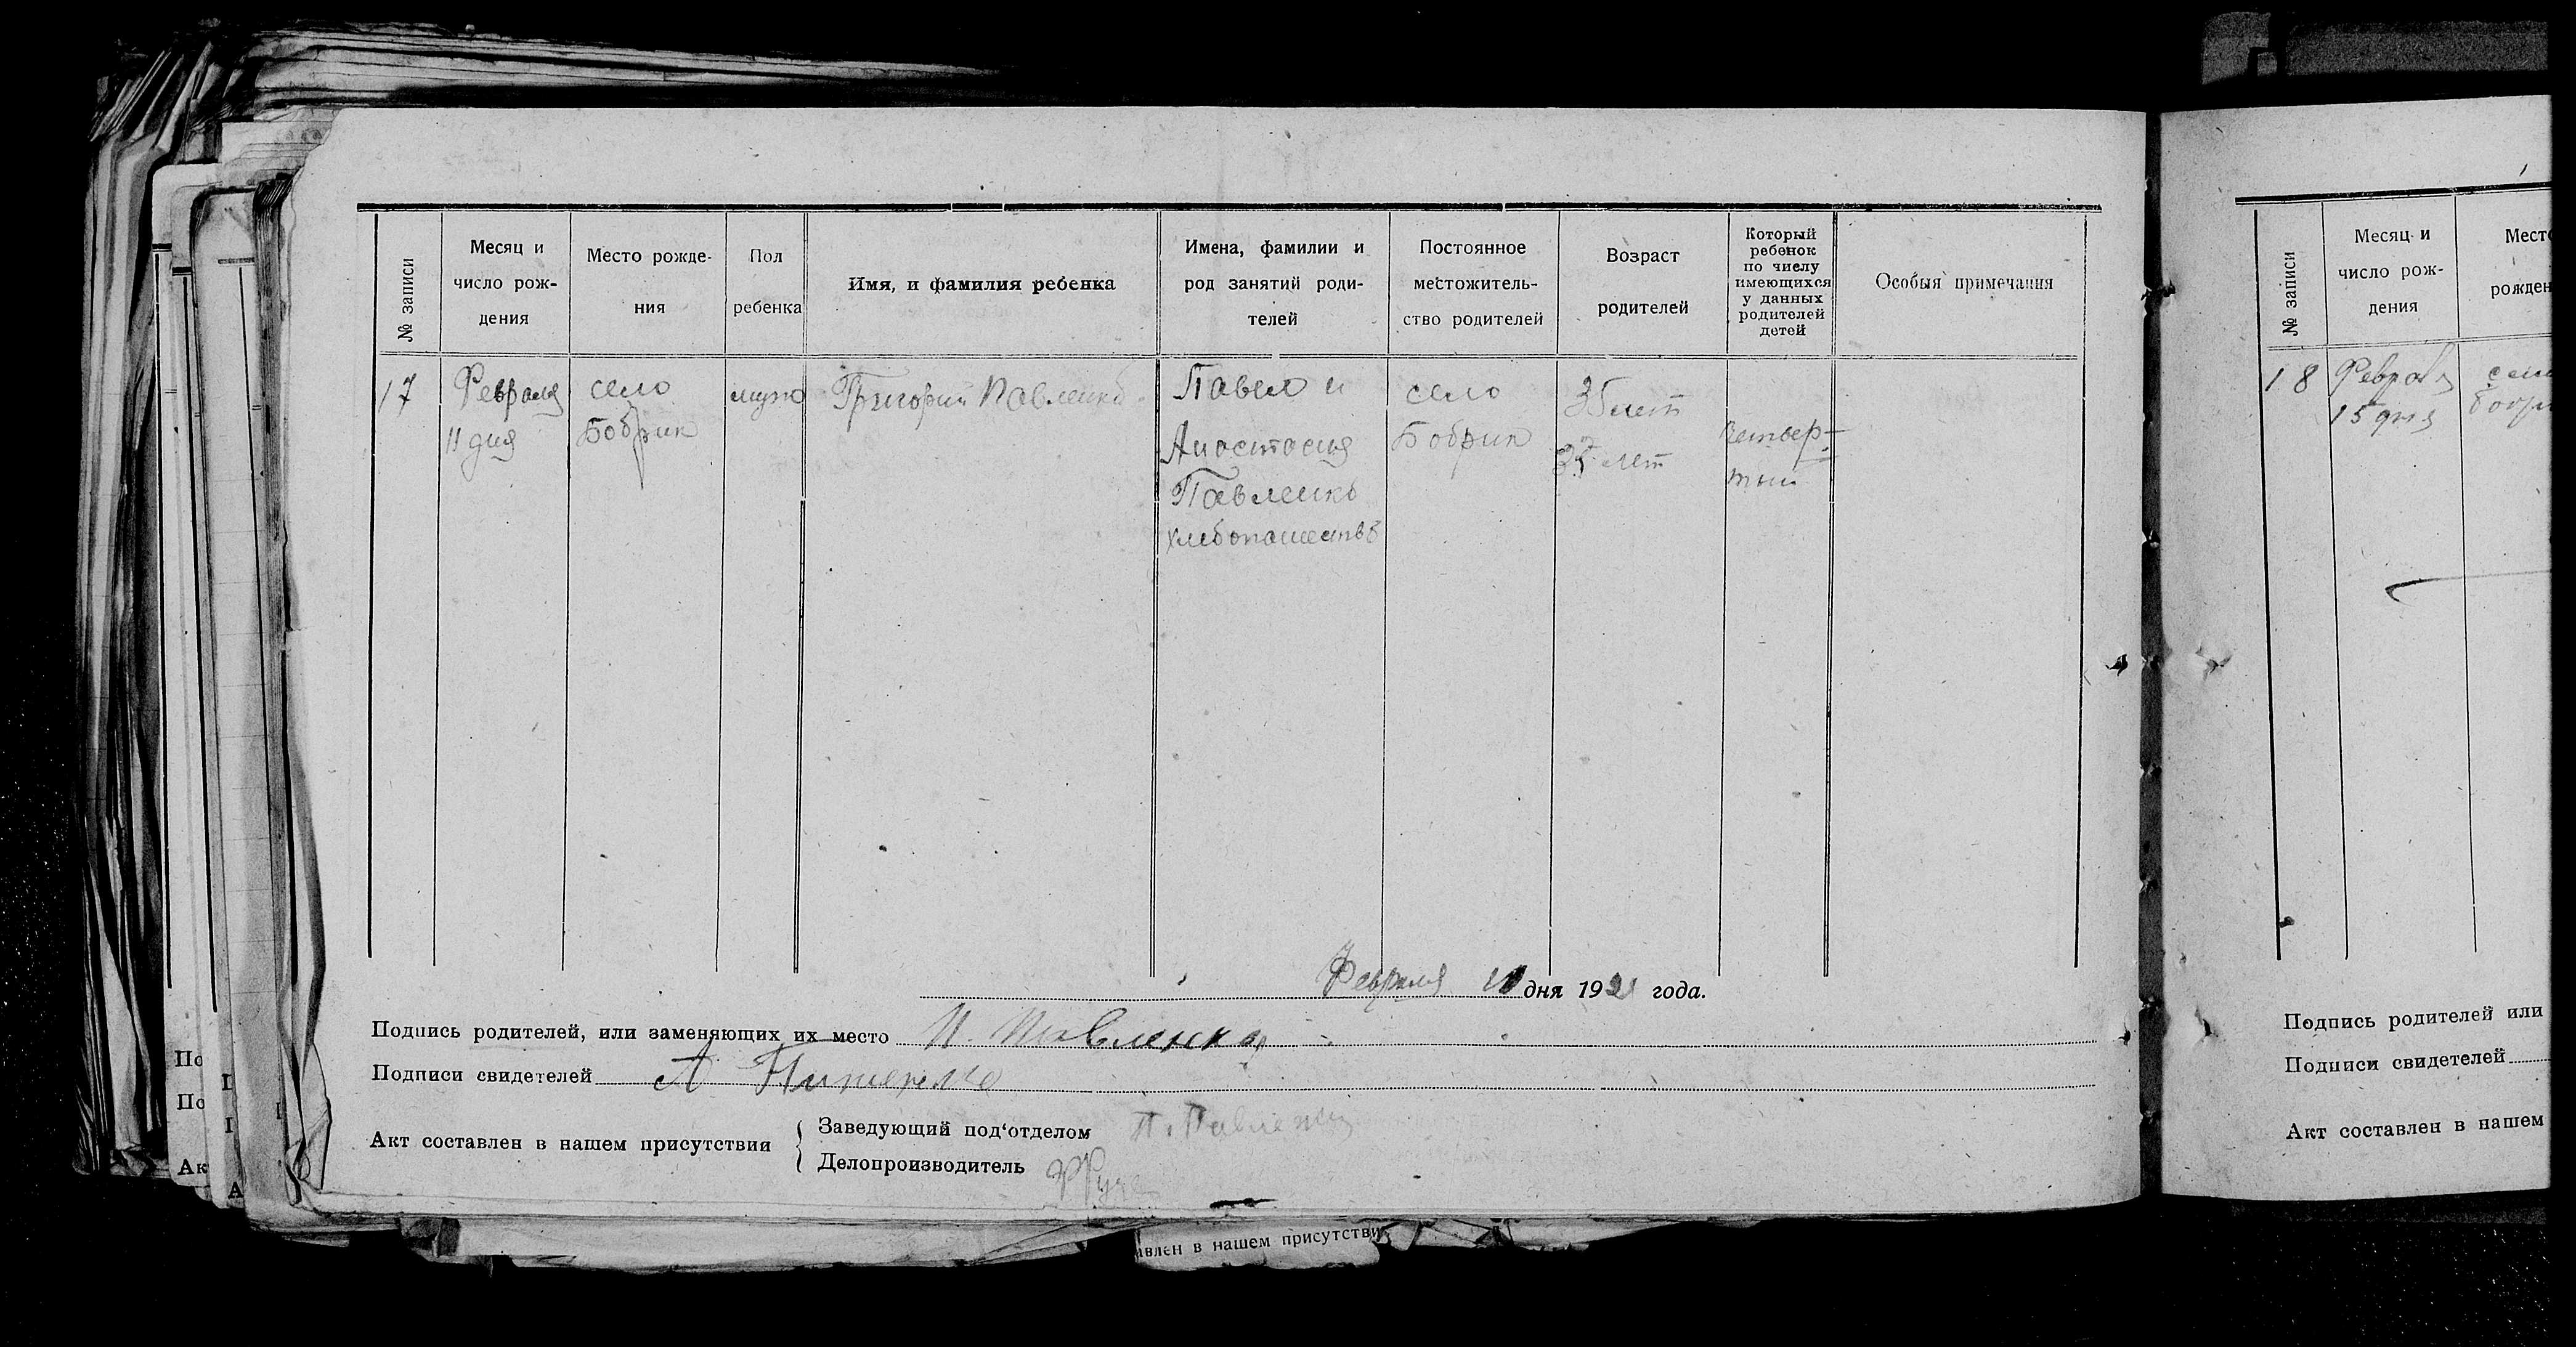 № записи
Месяц и
число рож-
дения
Место рожде-
ния
Пол
ребенка
Имя, и фамилия ребенка
Имена, фамилии и
род занятий роди-
телей
Постоянное
местожитель-
ство родителей
Возраст
родителей
Который
ребенок
по числу
имеющихся
у данных
родителей
детей
Особыя примечания
17
Февраля
11 дня
село
Бобрик
муж
Григорий Павленко
Павел и
Анастасия
Павленко
хлебопашество
село
Бобрик
35 лет
лет
четвер-
тый
Февраля дня 1921 года.
Подпись родителей, или заменяющих их место П. Павленко
Подписи свидетелей А
Акт составлен в нашем присутствии
Заведующий под'отделом П. Павленко
Делопроизводитель
авлен в нашем присутстви
№ записи
Месяц и
число рож-
дения
Мест
рожден
18
Февраля
15 дня
село
Бобри
Подпись родителей или
Подписи свидетелей
Акт составлен в нашем
По
По
Ак
А